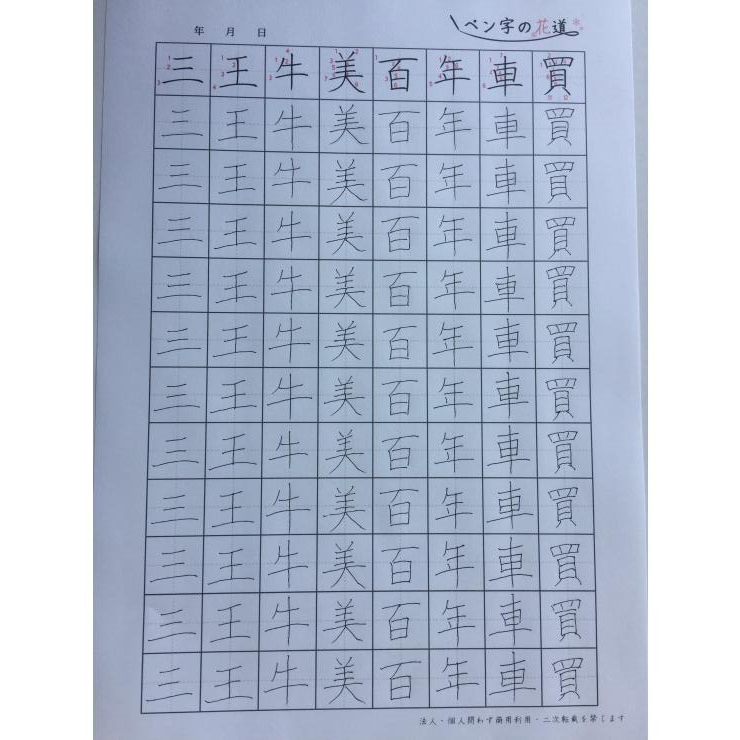 年 月 日
ペン字の花道
三 王 牛 美 百 年 車 買
三 王 牛 美 百 年 車 買
三 王 牛 美 百 年 車 買
三 王 牛 美 百 年 車 買
三 王 牛 美 百 年 車 買
三 王 牛 美 百 年 車 買
三 王 牛 美 百 年 車 買
三 王 牛 美 百 年 車 買
三 王 牛 美 百 年 車 買
三 王 牛 美 百 年 車 買
三 王 牛 美 百 年 車 買
三 王 牛 美 百 年 車 買
法人・個人問わず商用利用・二次転載を禁じます